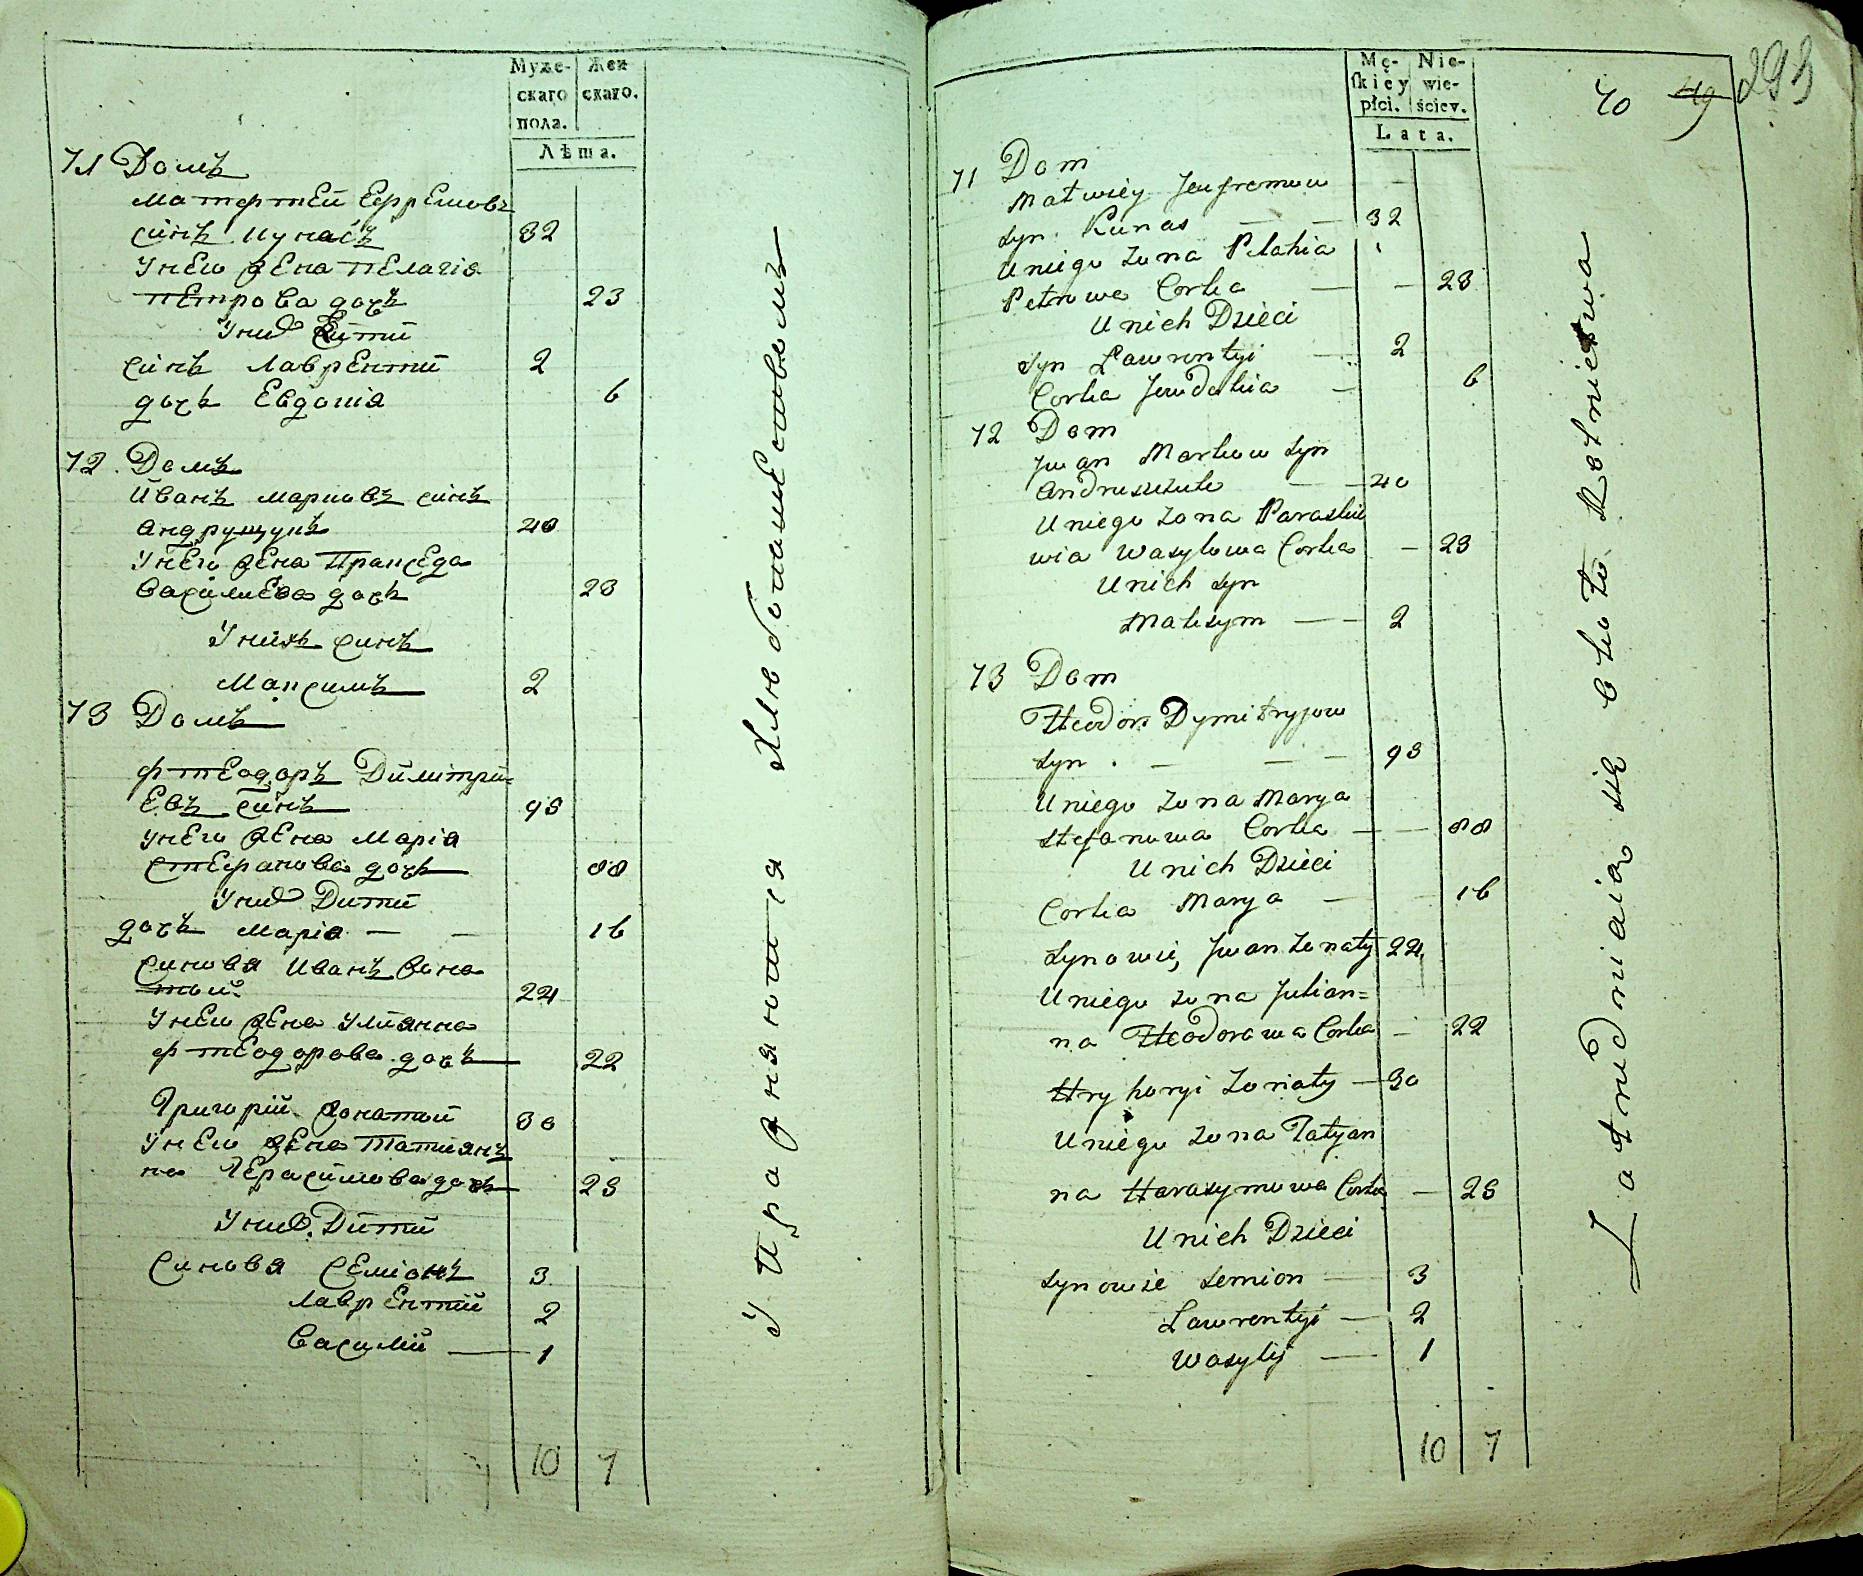 Муже-
скаго
пола.
Жен
скаго.
Лѣта.
71 Домъ
Матфтей Ефремовъ
синъ Кунасъ 32
У него жена Пелагія
Петрова дочь 23
У них Дити
синъ Лаврентий 2
дочь Евдокия 6
72 Домъ
Иванъ Марковъ синъ
Андрущукъ 40
У него жена Праскеда
Василиева дочь 23
У нихъ синъ
Максимъ 2
73 Домъ
Фтеодоръ Димитри=
евъ синъ 93
У него жена Марія
Стефанова дочь 88
У них Дити
дочь Марія — — 16
Синовя Иванъ Жона
тый 24
У него жена Улиянна
Фтеодорова дочь 22
Григорій Жонатий 30
У него жена Татиянъ
на Герасимова дочь 23
У них Дити
Синовя Семіонъ 3
Лаврентий 2
Василий — 1
10 7
Упражняются Хлѣбопашествомъ
Mę-
skiey
płci.
Nie-
wie-
ściey.
Lata.
70 49 293
71 Dom
Matwiey Jeufremow
syn Kunas — — 32
U niego Zona Pelahia
Petrowa Corka — — 23
U nich Dzieci
syn Lawrentyi — 2
Corka Jewdokia — 6
72 Dom
Jwan Markow syn
Andruszczuk — — 40
U niego Zona Paraskie
wia Wasylowa Corka — 23
U nich syn
Maksym — — 2
73 Dom
Hteodor Dymitryjow
syn . — — — 93
U niego Zona Marya
Stefanowa Corka — — 88
U nich Dzieci
Corka Marya — 16
synowie, Jwan Zonaty 24
U niego Zona Julian=
na Hteodorowa Corka — 22
Hryhoryi Zonaty — 30
U niego Zona Tatyan
na Harasymowa Corka — 23
U nich Dzieci
synowie Semion — 3
Lawrentyi — 2
Wasylij — 1
10 7
Zatrudniaią się około Rolnictwa